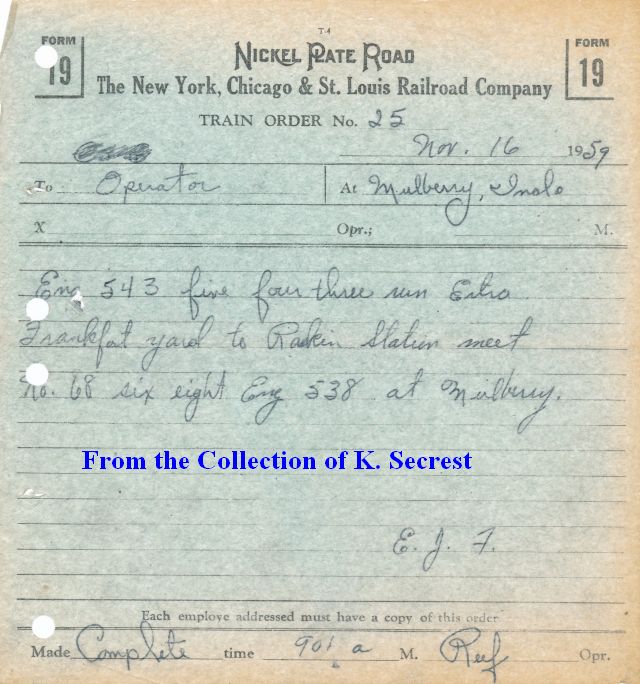 T-4
FORM 19
NICKEL PLATE ROAD
FORM 19
The New York, Chicago & St. Louis Railroad Company
TRAIN ORDER No. 25
Nov. 16 1959
To Operator At Mulberry, Inda
X Opr.; M.
Eng 543 five four three run Extra
Frankfort yard to Raskin Station meet
No. 68 six eight Eng 538 at Mulberry.
From the Collection of K. Secrest
E. J. F.
Each employe addressed must have a copy of this order
Made Complete time 901 a M. Reef Opr.